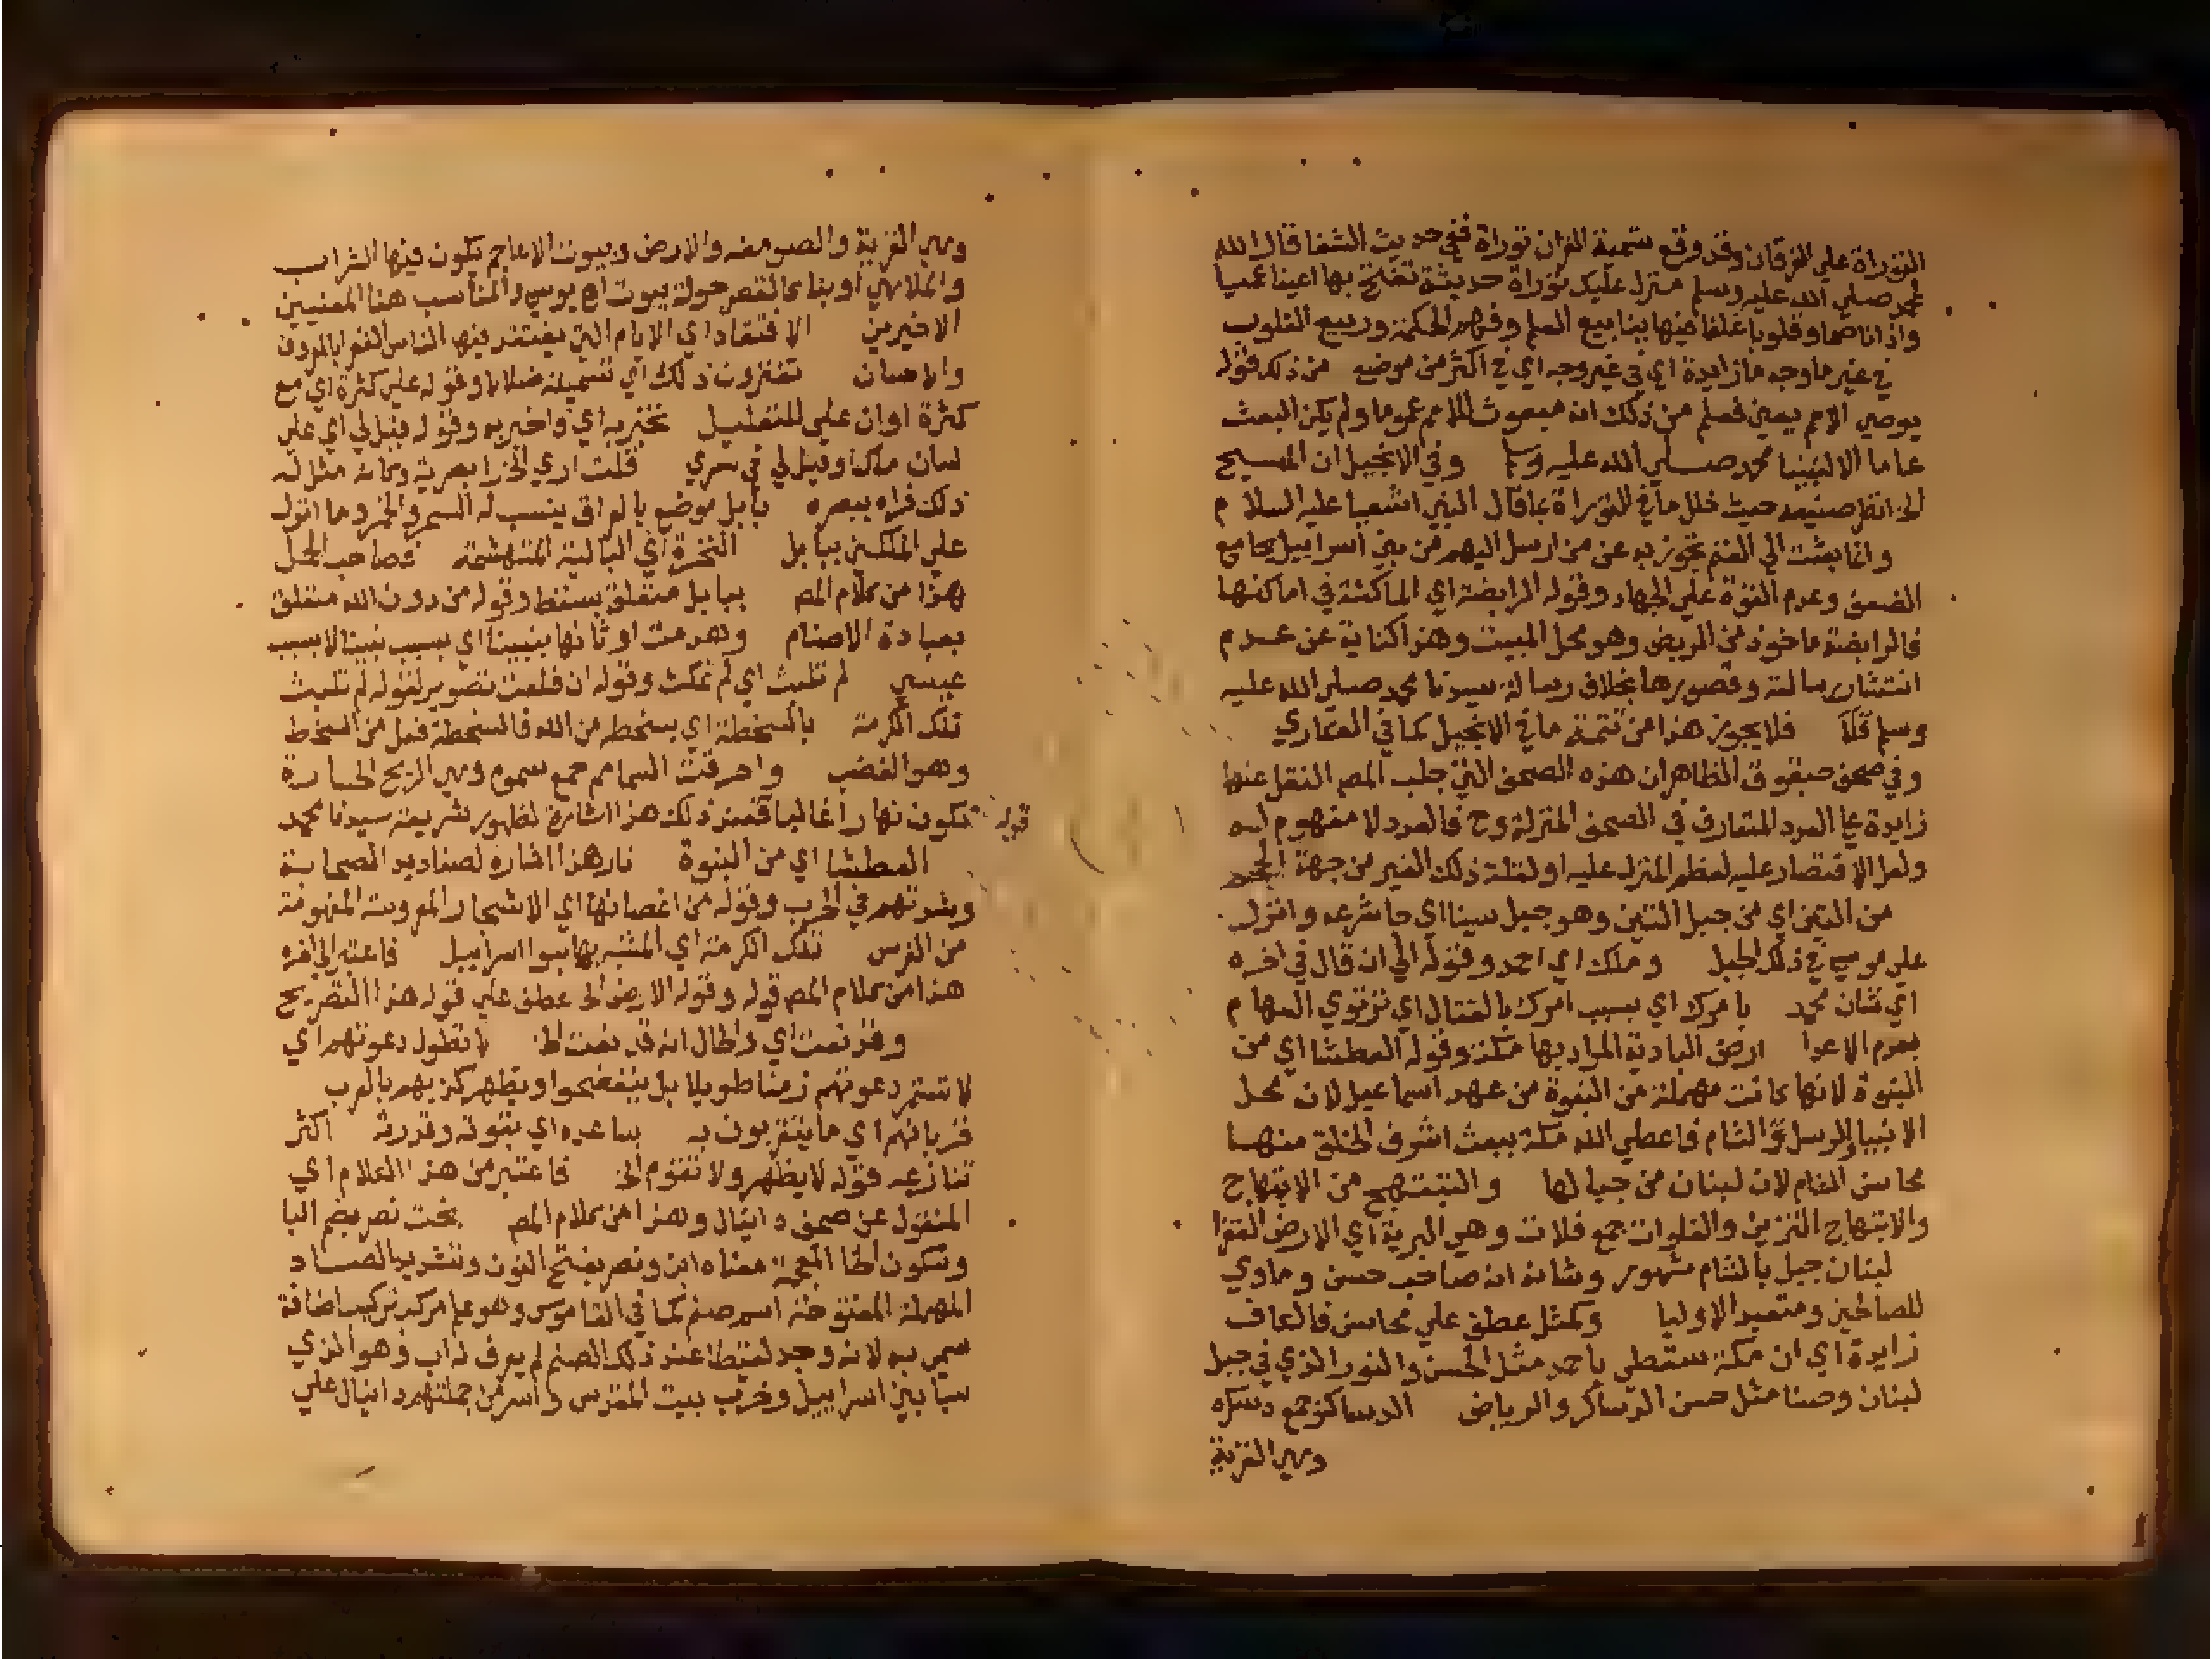 التوراة علي الفرقان وقد وقع تسمية القران توراة ففي حديث الشفا قال الله
لمحمد صلي الله عليه وسلم منزل عليك توراة حديثة تفتح بها اعينا عميا
واذانا صما وقلوبا غلفا فيها ينابيع العلم وفهم الحكمة وربيع القلوب
في غير ما وجه ما زايدة اي في غير وجه اي في اكثر من موضع من ذلك قوله
يوصي الامم يعني فعلم من ذلك انه مبعوث للامم عموما ولم يكن البعث
عاما الا لنبينا محمد صلي الله عليه وسلم وفي الانجيل ان المسيح
الخ انظر صنيعه حيث خلل ما في التوراة بما قال النبي اشعيا عليه السلام
وانما بعثت الي الغنم تجوز به عن من ارسل اليهم من بني اسراييل بجامع
الضعف وعدم القوة علي الجهاد وقوله الرابضة اي الماكثة في اماكنها
فالرابضة ماخوذ من الربض وهو محل المبيت وهذا كناية عن عدم
انتشار رسالته وقصورها بخلاف رسالة سيدنا محمد صلي الله عليه
وسلم فلا يجوز هذا من تتمة ما في الانجيل كما في
وفي صحف حبقوق الظاهر ان هذه الصحف التي جلب المص النقل عنها
زايدة عما العدد المتعارف في الصحف المنزلة وح فالعدد لا مفهوم له
ولعل الاقتصار عليه لعظم المنزل عليه او لقلة ذلك الغير من جهة الحجم
من التين اي من جبل التين وهو جبل سينا اي ما شرعه وانزل
علي موسي في ذلك الجبل وملك اي احمد وقوله الي ان قال في اخره
اي شان محمد بامرك اي بسبب امرك بالقتال اي ترتوي السهام
بعدم الاعدا ارض البادية المراد بها مكة وقوله العطشا اي من
النبوة لانها كانت مهملة من النبوة من عهد اسماعيل لان محل
الانبيا والرسل في الشام فاعطي الله مكة ببعث اشرف الخلق منها
محاسن الشام لان لبنان من جبالها والتبتهج من الابتهاج
والابتهاج التزين والفلوات جمع فلات وهي البرية اي الارض القفرا
لبنان جبل بالشام مشهور وشانه انه صاحب حسن وماوي
للصالحين ومتعبد الاوليا وكمثل عطف علي محاسن فالكاف
زايدة اي ان مكة ستعطي باحمد مثل الحسن والنور الذي في جبل
لبنان وحسنا مثل حسن الدساكر والرياض الدساكر جمع دسكره
وهي القرية
وهي القرية والصومعه والارض وبيوت الاعاجم تكون فيها الشراب
والملاهي او بنا كالقصر حوله بيوت والمناسب هنا المعنيين
الاخيرين الافتقاد اي الايام التي يفتقد فيها الناس الفقرا بالمعروف
والاحسان تفترون ذلك اي تسميته ضلالا وقوله علي كثرة اي مع
كثرة او ان علي للتعليل تخبر به اي واخبر به وقوله قيل لي اي علي
لسان ملك او قيل لي في سري قلت اري الخ راي بصرية وكانه مثل له
ذلك فراه ببصره بابل موضع بالعراق ينسب له السحر والخمر وما انزل
علي الملكين ببابل النخرة اي البالية المتهشمة فصاحب الجمل
هذا من كلام المص ببابل متعلق بسقط وقوله من دون الله متعلق
بعبادة الاصنام وهدمت اوثانها بنبينا اي بسبب نبينا لا بسبب
عيسي لم تلبث اي لم تمكث وقوله ان قلعت تصوير لقوله لم تلبث
تلك الكرمة بالسخطة اي بسخطه من الله فالسخطة فعل من السخط
وهو الغضب واحرقت السمايم جمع سموم وهي الريح الحارة
قوله تكون نهارا غالبا فعند ذلك هذا اشارة لظهور شريعة سيدنا محمد
العطشا اي من النبوة نار هذا اشاره لصناديد الصحابة
وشدتهم في الحرب وقوله من اغصانها اي الاشجار المغروسة المفهومة
من الغرس تلك الكرمة اي المشبه بها بنوا اسراييل فاعتبر الي اخره
هذا من كلام المص قوله وقوله الارض الخ عطف علي قوله هذا التصريح
وقد نعت اي والحال انه قد نعت لا تطول دعوتهم اي
لا تستمر دعوتهم زمنا طويلا بل يفتضحوا ويظهر كذبهم بالعرب
قربانهم اي ما يتقربون به بساعده اي بقوته وقدرته اكثر
تنازعه قوله لا يظهر ولا تقوم الخ فاعتبر من هذا الكلام اي
المنقول عن صحف دانيال وهذا من كلام المص بخت نصر بضم البا
وسكون الخا المعجمة معناه ابن ونصر بفتح النون وتشديد الصاد
المهملة المفتوحة اسم صنم كما في القاموس وهو علم مركب تركيب اضافة
سمي به لانه وجد لقيطا عند ذلك الصنم لم يعرف له اب وهو الذي
سبا بني اسراييل وخرب بيت المقدس واسر من جملتهم دانيال علي